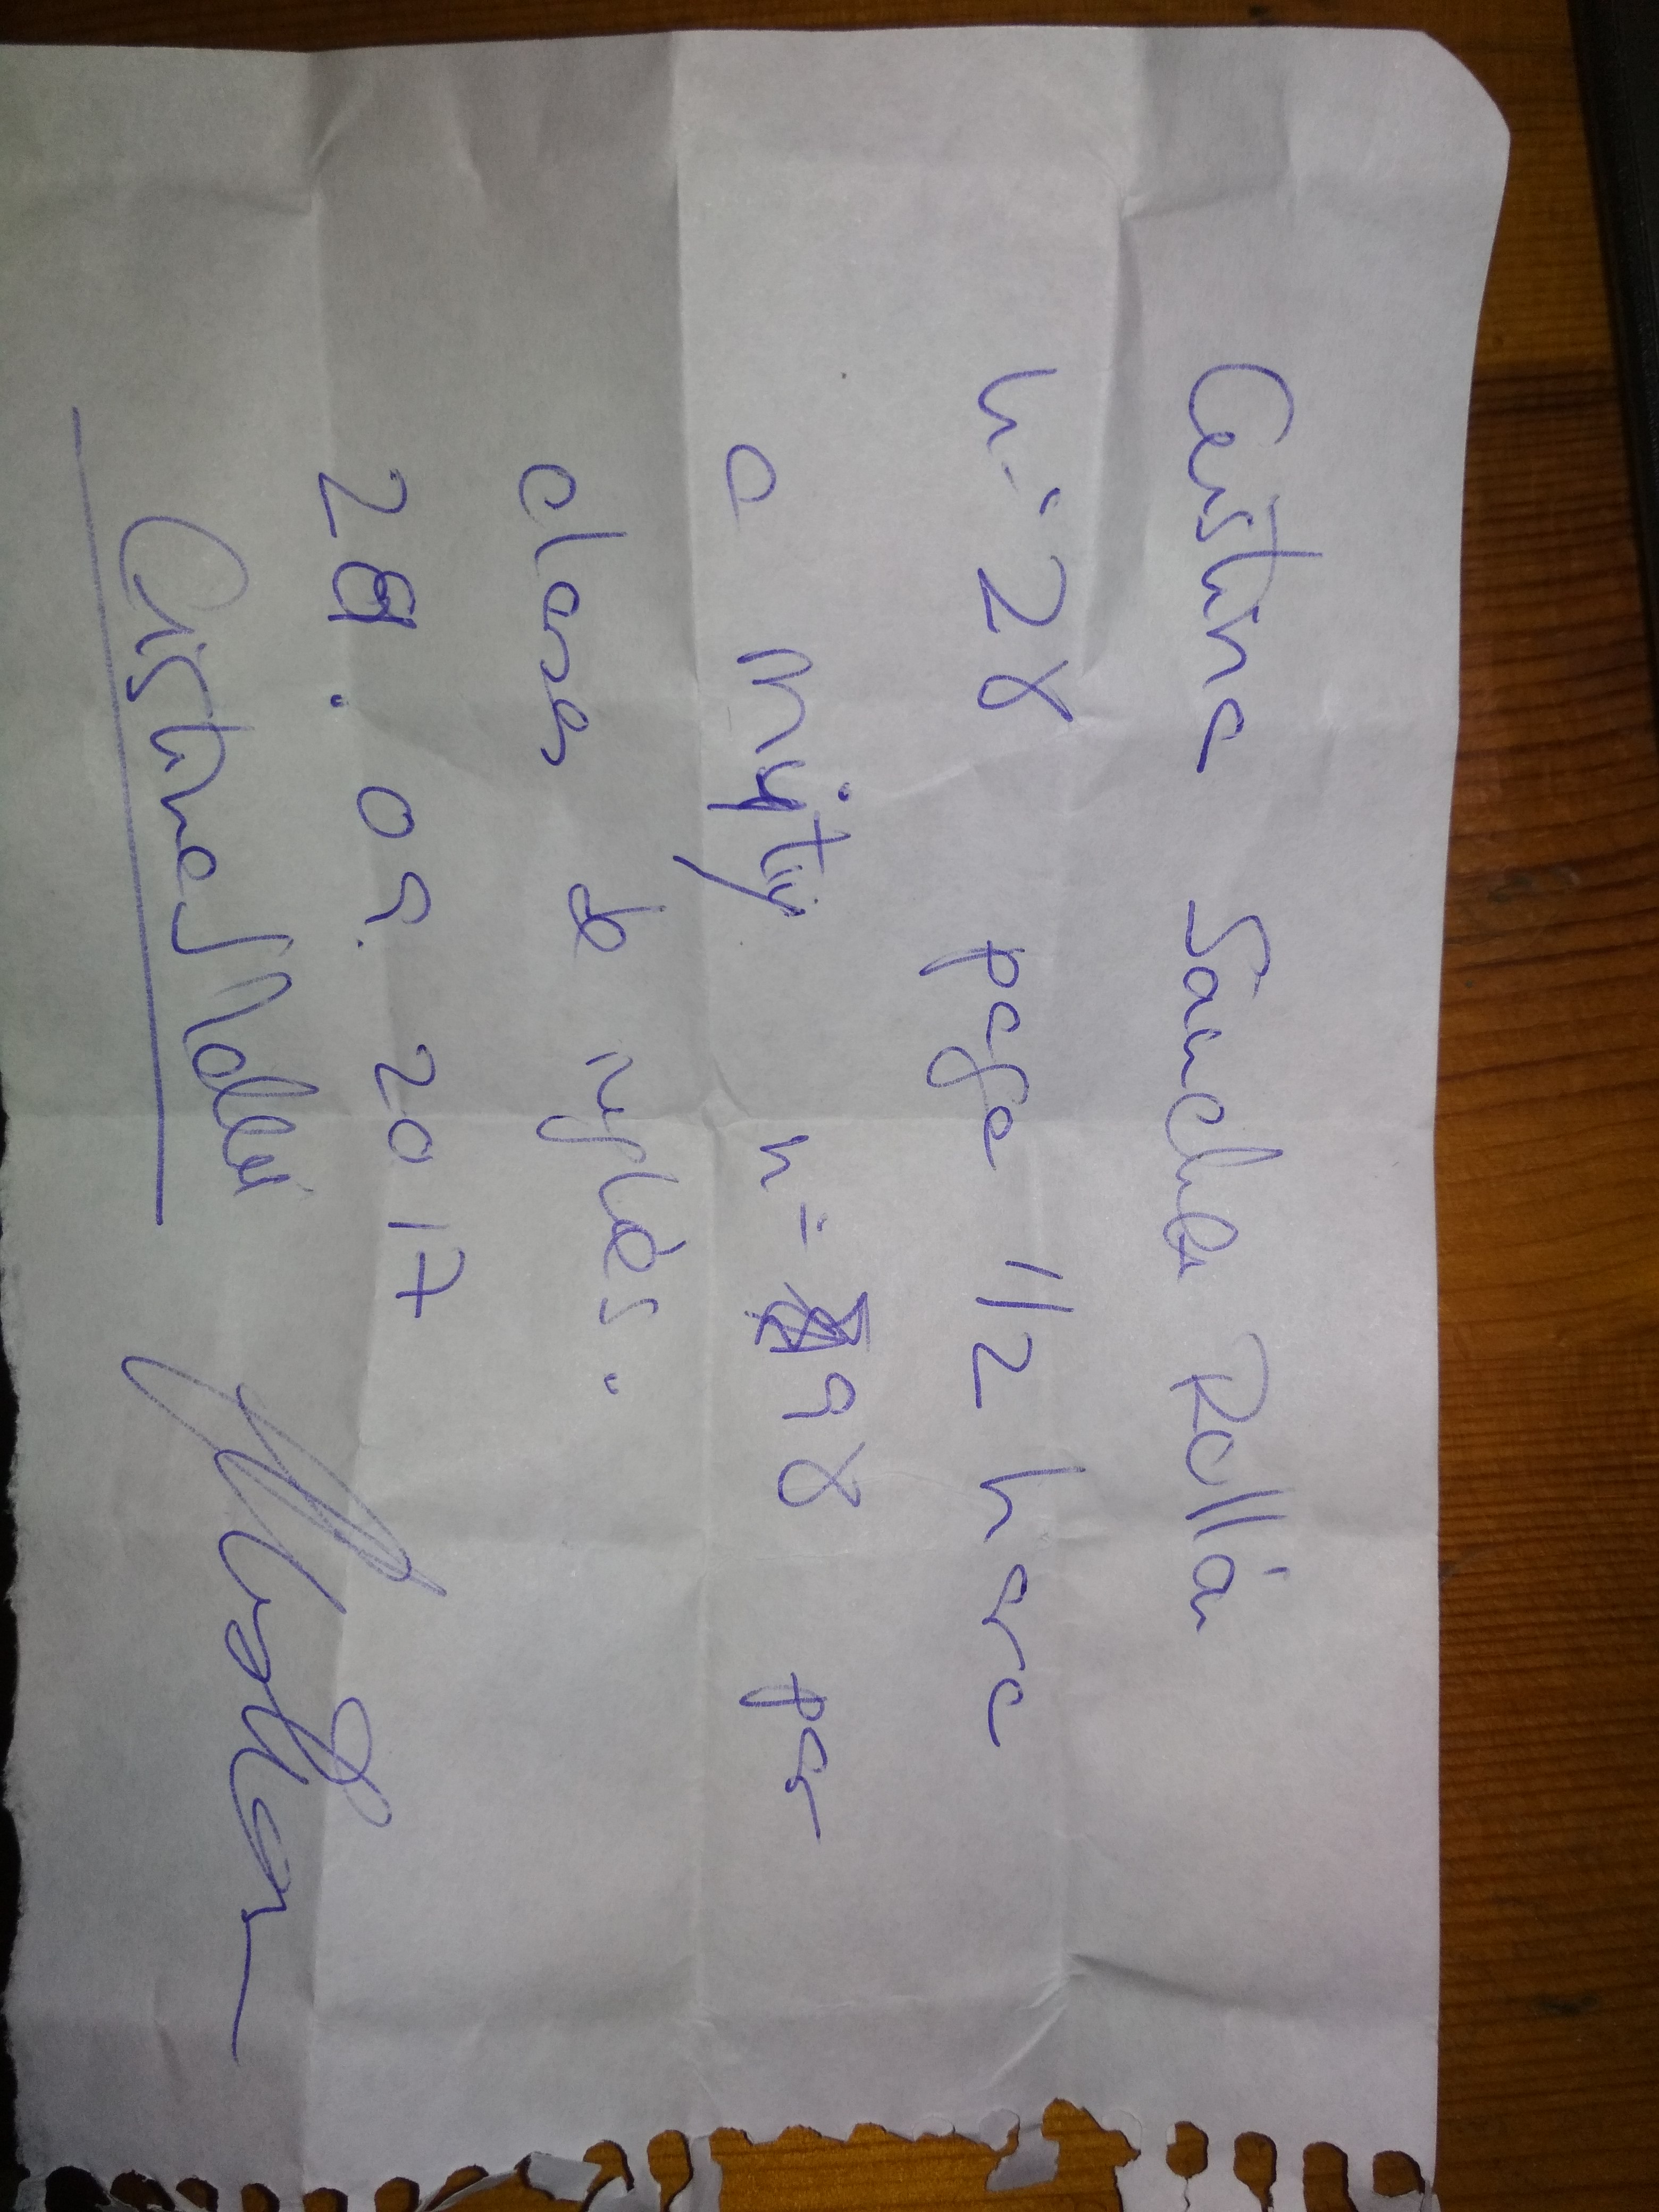 Cristina Sanchez Rollán
nº 28 paga 1/2 hora
a Myty nº 98 por
clases de inglés.
28.09.2017
Cristina S Rollán